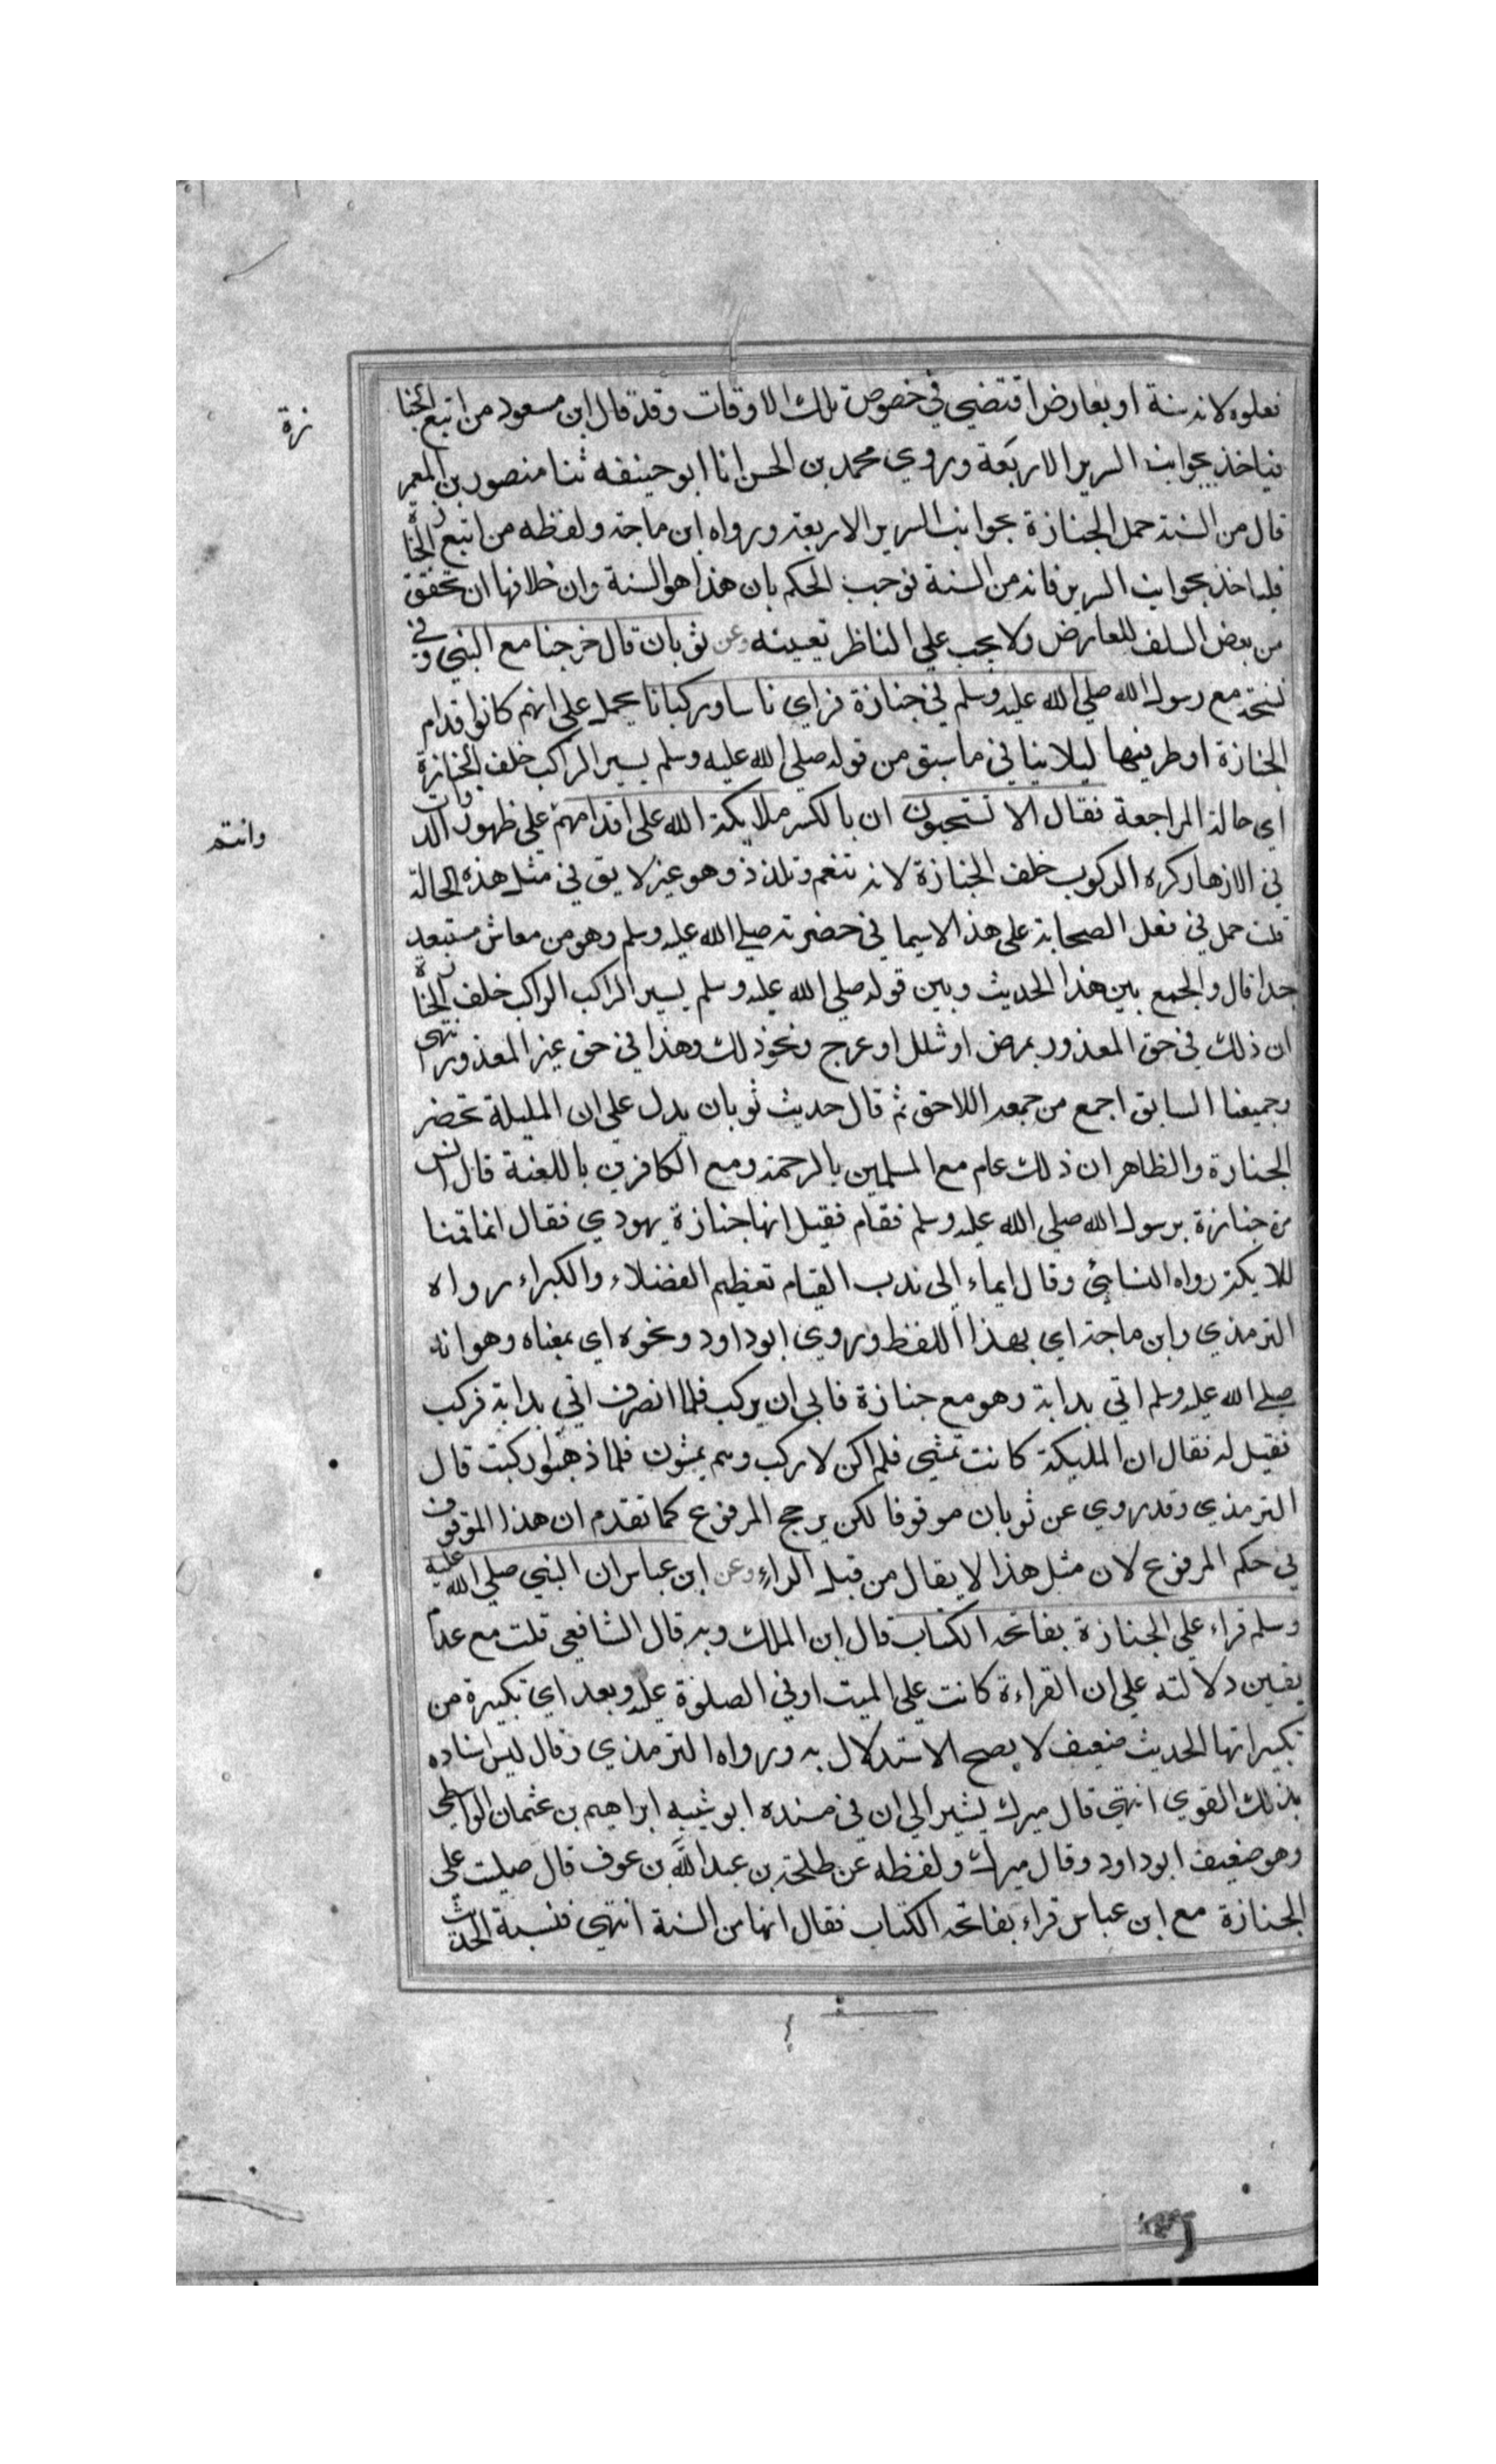 فعلوه لانه سنة او بعارض اقتضي في خصوص تلك الاوقات وقد قال ابن مسعود من اتبع الجنا
زة
فياخذ بجوانب السرير الاربعة وروي محمد بن الحسن انا ابو حنيفه ثنا منصور بن المعمر
قال من السنة حمل الجنازة بجوانب السرير الاربعة ورواه ابن ماجة ولفظه من اتبع الجنازة
فلياخذ بجوانب السرير فانه من السنة فوجب الحكم بان هذا هو السنة وان خلافها ان تحقق
من بعض السلف للعارض ولا يجب علي الناظر تعيينه وعن ثوبان قال خرجنا مع النبي وفي
نسخة مع رسول الله صلي الله عليه وسلم في جنازة فراي ناسا وركبانا يحمل علي انهم كانوا قدام
الجنازة او طرفيها ليلا ينافي ما سبق من قوله صلي الله عليه وسلم يسير الراكب خلف الجنازة
اي حالة المراجعة فقال الا تستحيون ان بالكسر ملايكة الله علي اقدامهم علي ظهور الدواب
وانتم
في الازهار كره الركوب خلف الجنازة لانه تنعم وتلذذ وهو غير لايق في مثل هذه الحالة
قلت حمل في فعل الصحابة علي هذا لاسيما في حضرته صلي الله عليه وسلم وهو من معاش مستبعد
جدا قال والجمع بين هذا الحديث وبين قوله صلي الله عليه وسلم يسير الراكب الراكب خلف الجنازة
ان ذلك في حق المعذور بمرض او شلل او عرج ونحو ذلك وهذا في حق غير المعذور انتهي
وجميعنا السابق اجمع من جمعه اللاحق ثم قال حديث ثوبان يدل علي ان المليلة تحضر
الجنازة والظاهر ان ذلك عام مع المسلمين بالرحمة ومع الكافرين باللعنة قال انس
مرة جنازة برسول الله صلي الله عليه وسلم فقام فقيل انها جنازة يهودي فقال انما قمنا
للايكة رواه النسائي وقال ايماء الي ندب القيام تعظيم الفضلاء والكبراء رواه
الترمذي وابن ماجة اي بهذا اللفظ وروي ابو داود ونحوه اي بمعناه وهو انه
صلي الله عليه وسلم اتي بدابة وهو مع جنازة فابي ان يركب فلما انصرف اتي بدابة فركب
فقيل له فقال ان المليكة كانت تمشي فلم اكن لاركب وهم يمشون فلما ذهبوا ركبت قال
الترمذي وقد روي عن ثوبان موقوفا لكن يرجح المرفوع كما تقدم ان هذا الموقوف
في حكم المرفوع لان مثل هذا لا يقال من قبل الراء وعن ابن عباس ان النبي صلي الله عليه
وسلم قراء علي الجنازة بفاتحة الكتاب قال ابن الملك وبه قال الشافعي قلت مع عدم
يقين دلالته علي ان القراءة كانت علي الميت او في الصلوة عليه وبعد اي تكبيرة من
تكبيراتها الحديث ضعيف لا يصح الاستدلال به ورواه الترمذي وقال ليس اسناده
بذلك القوي انتهي قال ميرك يشير الي ان في مسنده ابو شيبه ابراهيم بن عثمان الواسطي
وهو ضعيف ابو داود وقال ميرك ولفظه عن طلحة بن عبد الله بن عوف قال صليت علي
الجنازة مع ابن عباس قراء بفاتحة الكتاب فقال انها من السنة انتهي فنسبة الحديث